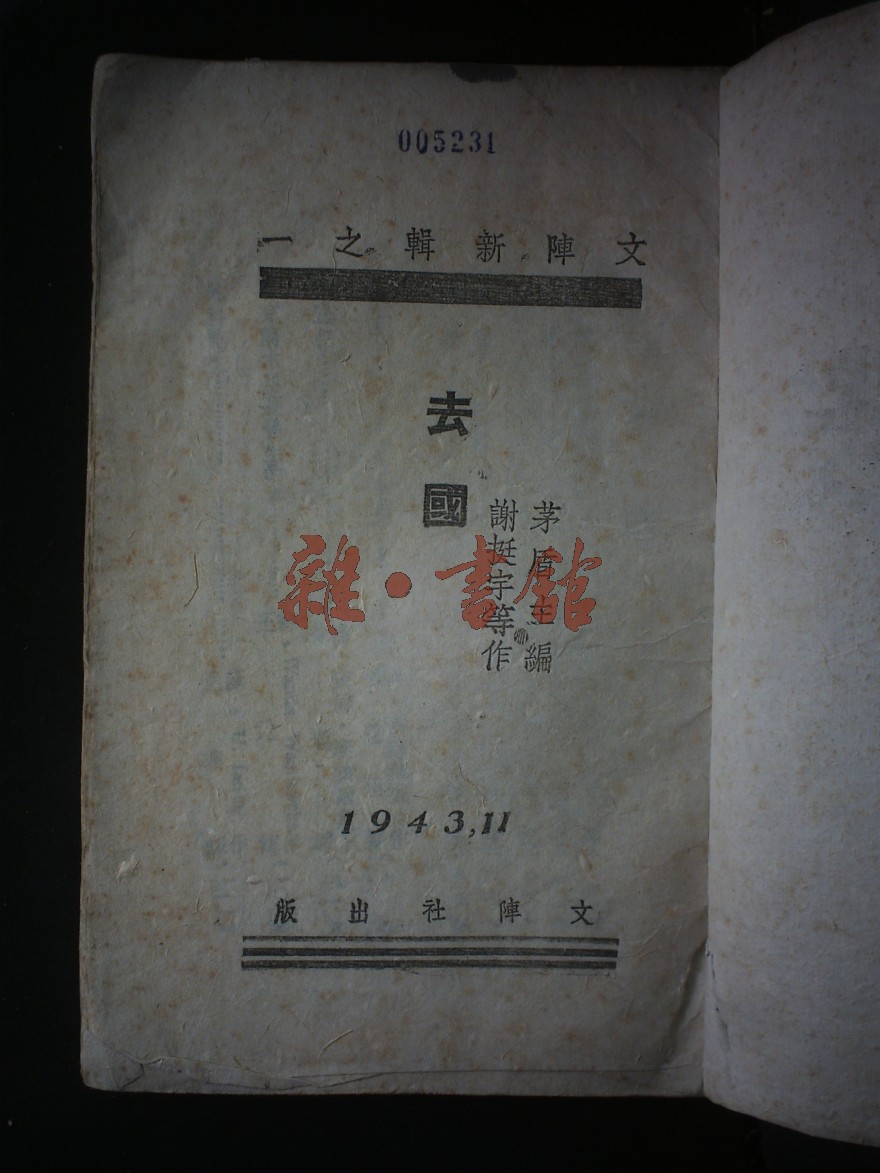 005231
文陣新輯之一
去國
茅盾主編
謝挺宇等作
雜·書館
1943,11
文陣社出版